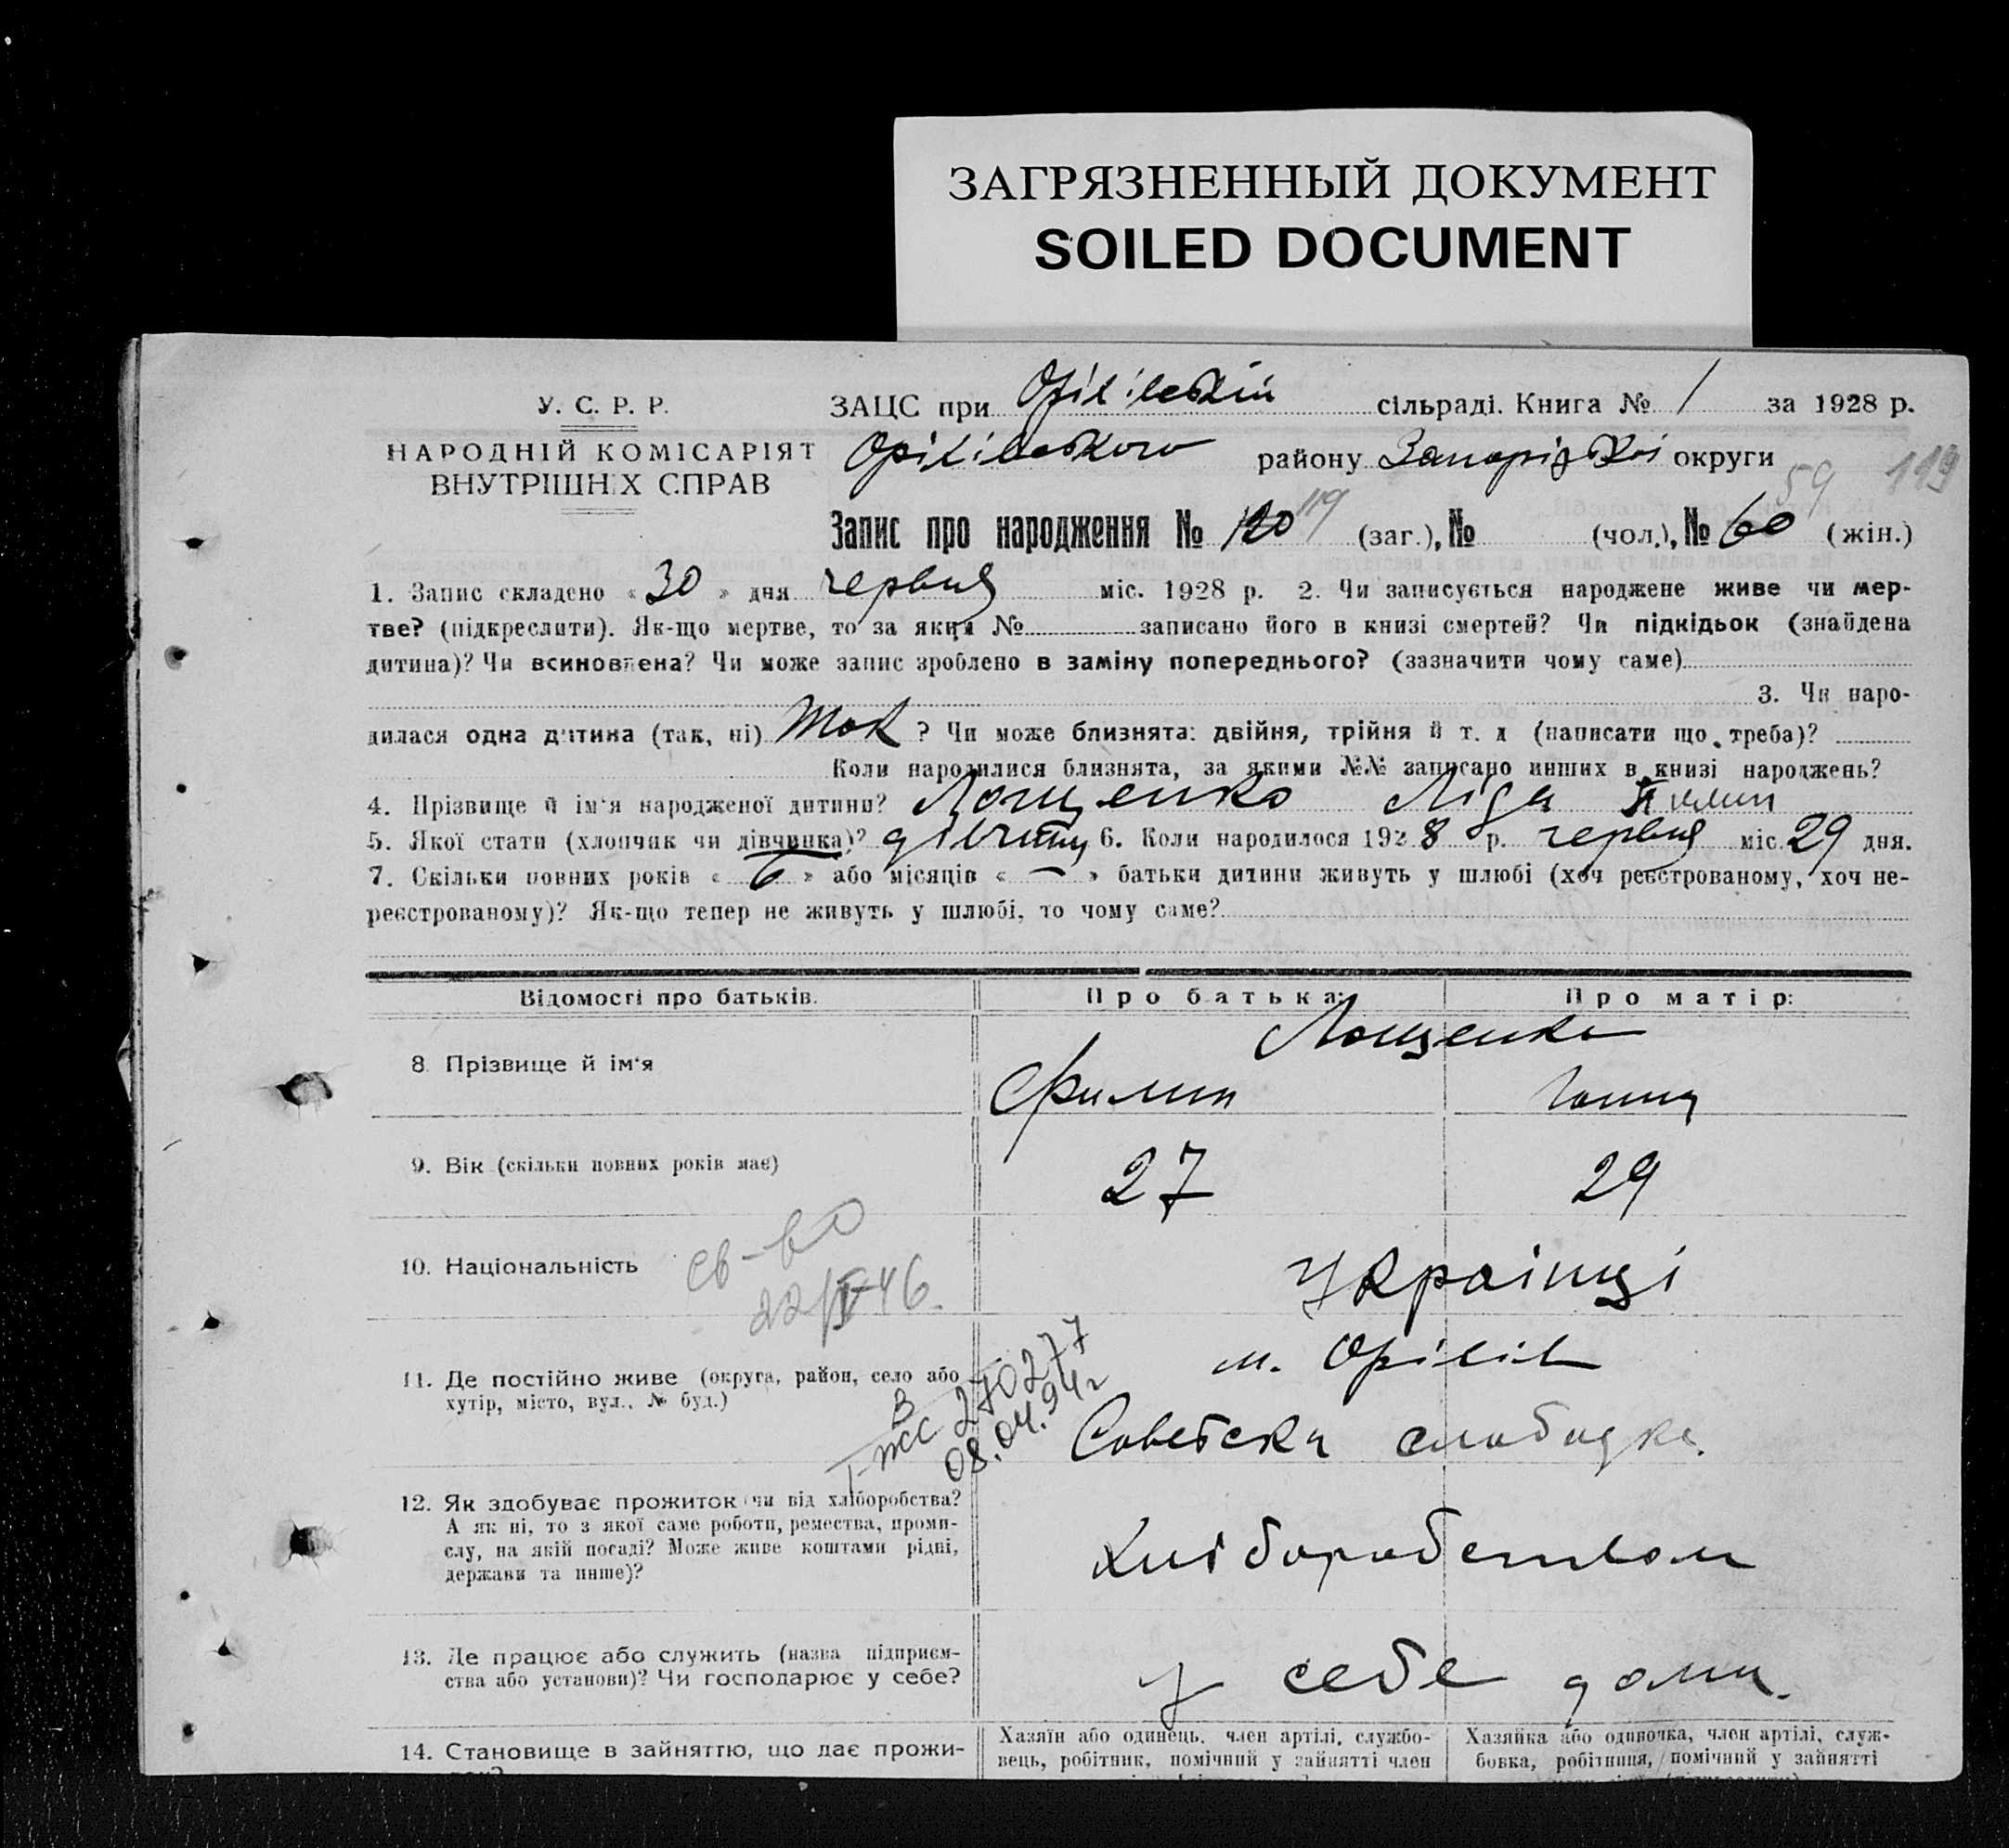 ЗАГРЯЗНЕННЫЙ ДОКУМЕНТ
SOILED DOCUMENT
У. С. Р. Р.
НАРОДНІЙ КОМІСАРІЯТ
ВНУТРІШНІХ СПРАВ
ЗАЦС при Оріхівській сільраді. Книга № 1 за 1928 р.
Оріхівського району Запорізької округи
59 119
Запис про народження № 120 119 (заг.), № (чол.), № 60 (жін.)
1. Запис складено « 30 » дня червня міс. 1928 р. 2. Чи записується народжене живе чи мер-
тве? (підкреслити). Як-що мертве, то за яким № записано його в книзі смертей? Чи підкідьок (знайдена
дитина)? Чи всиновлена? Чи може запис зроблено в заміну попереднього? (зазначити чому саме)
3. Чи наро-
дилася одна дитина (так, ні) Так ? Чи може близнята: двійня, трійня й т. д (написати що треба)?
Коли народилися близнята, за якими №№ записано инших в книзі народжень?
4. Прізвище й ім‘я народженої дитини? Лощенко Ліда
5. Якої стати (хлопчик чи дівчинка)? дівчина 6. Коли народилося 1928 р. червня міс. 29 дня.
7. Скільки повних років « 6 » або місяців « — » батьки дитини живуть у шлюбі (хоч реєстрованому, хоч не-
реєстрованому)? Як-що тепер не живуть у шлюбі, то чому саме?
Відомості про батьків. Про батька: Про матір:
Лощенко
8. Прізвище й ім‘я Филип Ганна
9. Вік (скільки повних років має) 27 29
10. Національність Українці
св-во
22/V-46.
11. Де постійно живе (округа, район, село або
хутір, місто, вул., № буд.)
м. Оріхів
Советська слободка.
270277
08.04.94г
12. Як здобуває прожиток чи від хліборобства?
А як ні, то з якої саме роботи, ремества, проми-
слу, на якій посаді? Може живе коштами рідні,
держави та инше)?
Хліборобством
13. Де працює або служить (назва підприєм-
ства або установи)? Чи господарює у себе?
у себе дома.
14. Становище в зайняттю, що дає прожи-
Хазяїн або одинець, член артілі, службо-
вець, робітник, помічний у зайнятті член
Хазяйка або одиночка, член артілі, служ-
бовка, робітниця, помічний у зайнятті